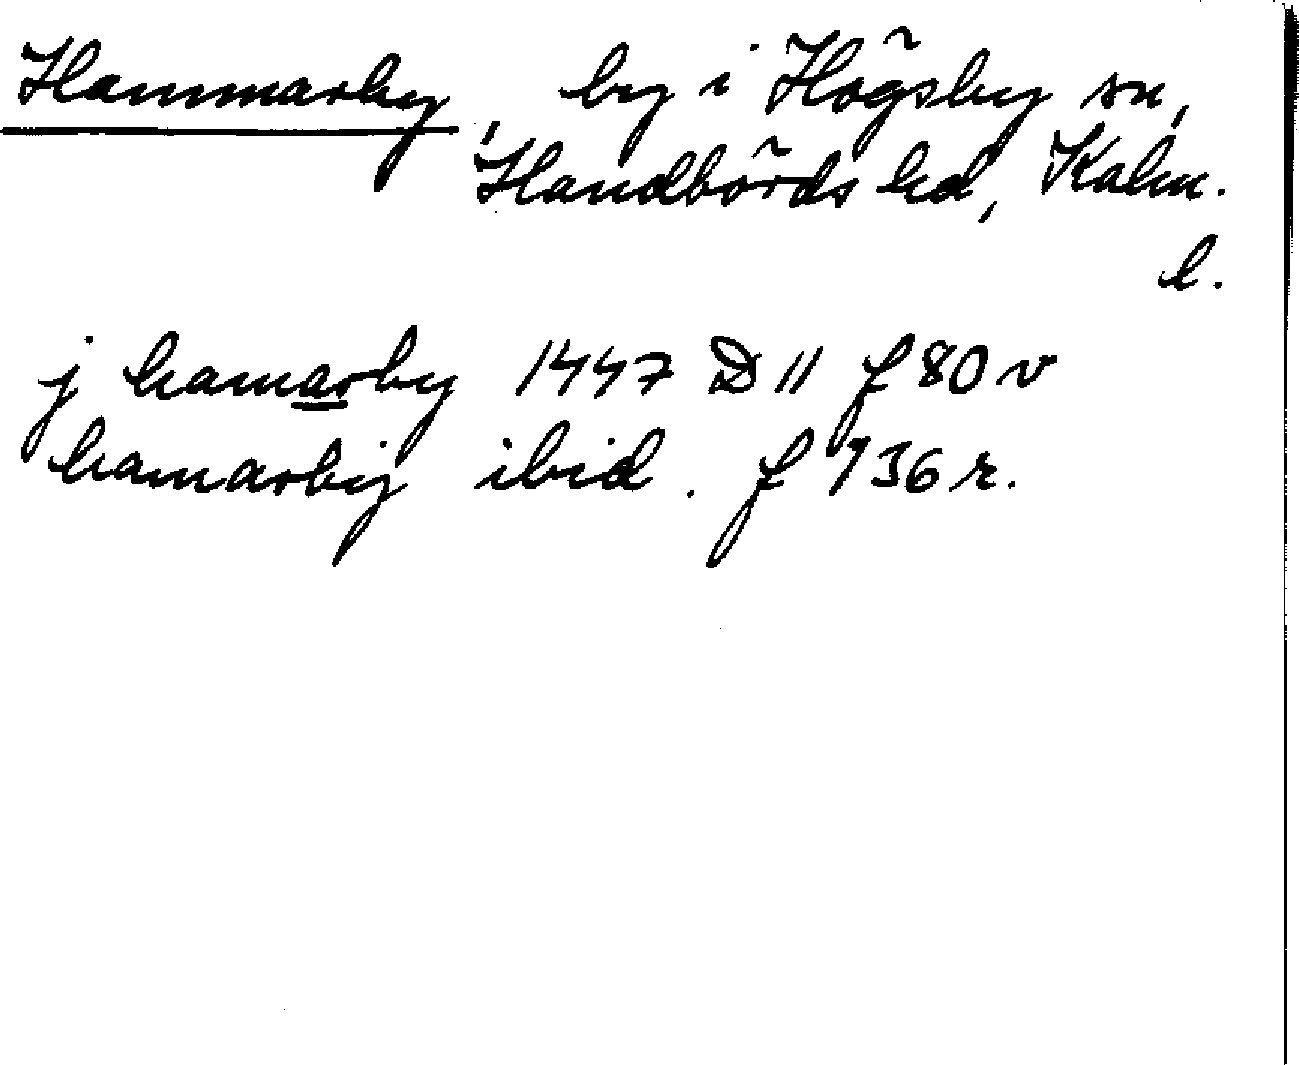 Hammarby, by i Högsby sn,
Handbörds hd, Kalm.
l.
j hamarby 1447 D 11 f 80 v
hamarbij ibid. f 136 r.